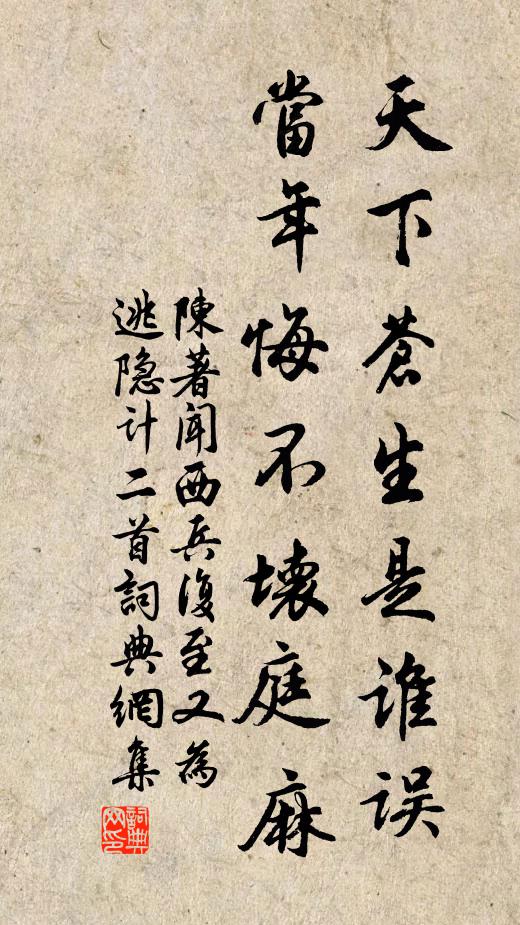 天下蒼生是誰误
當年悔不壞庭麻
陳著闻西兵復至又為
逃隐计二首詞典網集
詞典网印